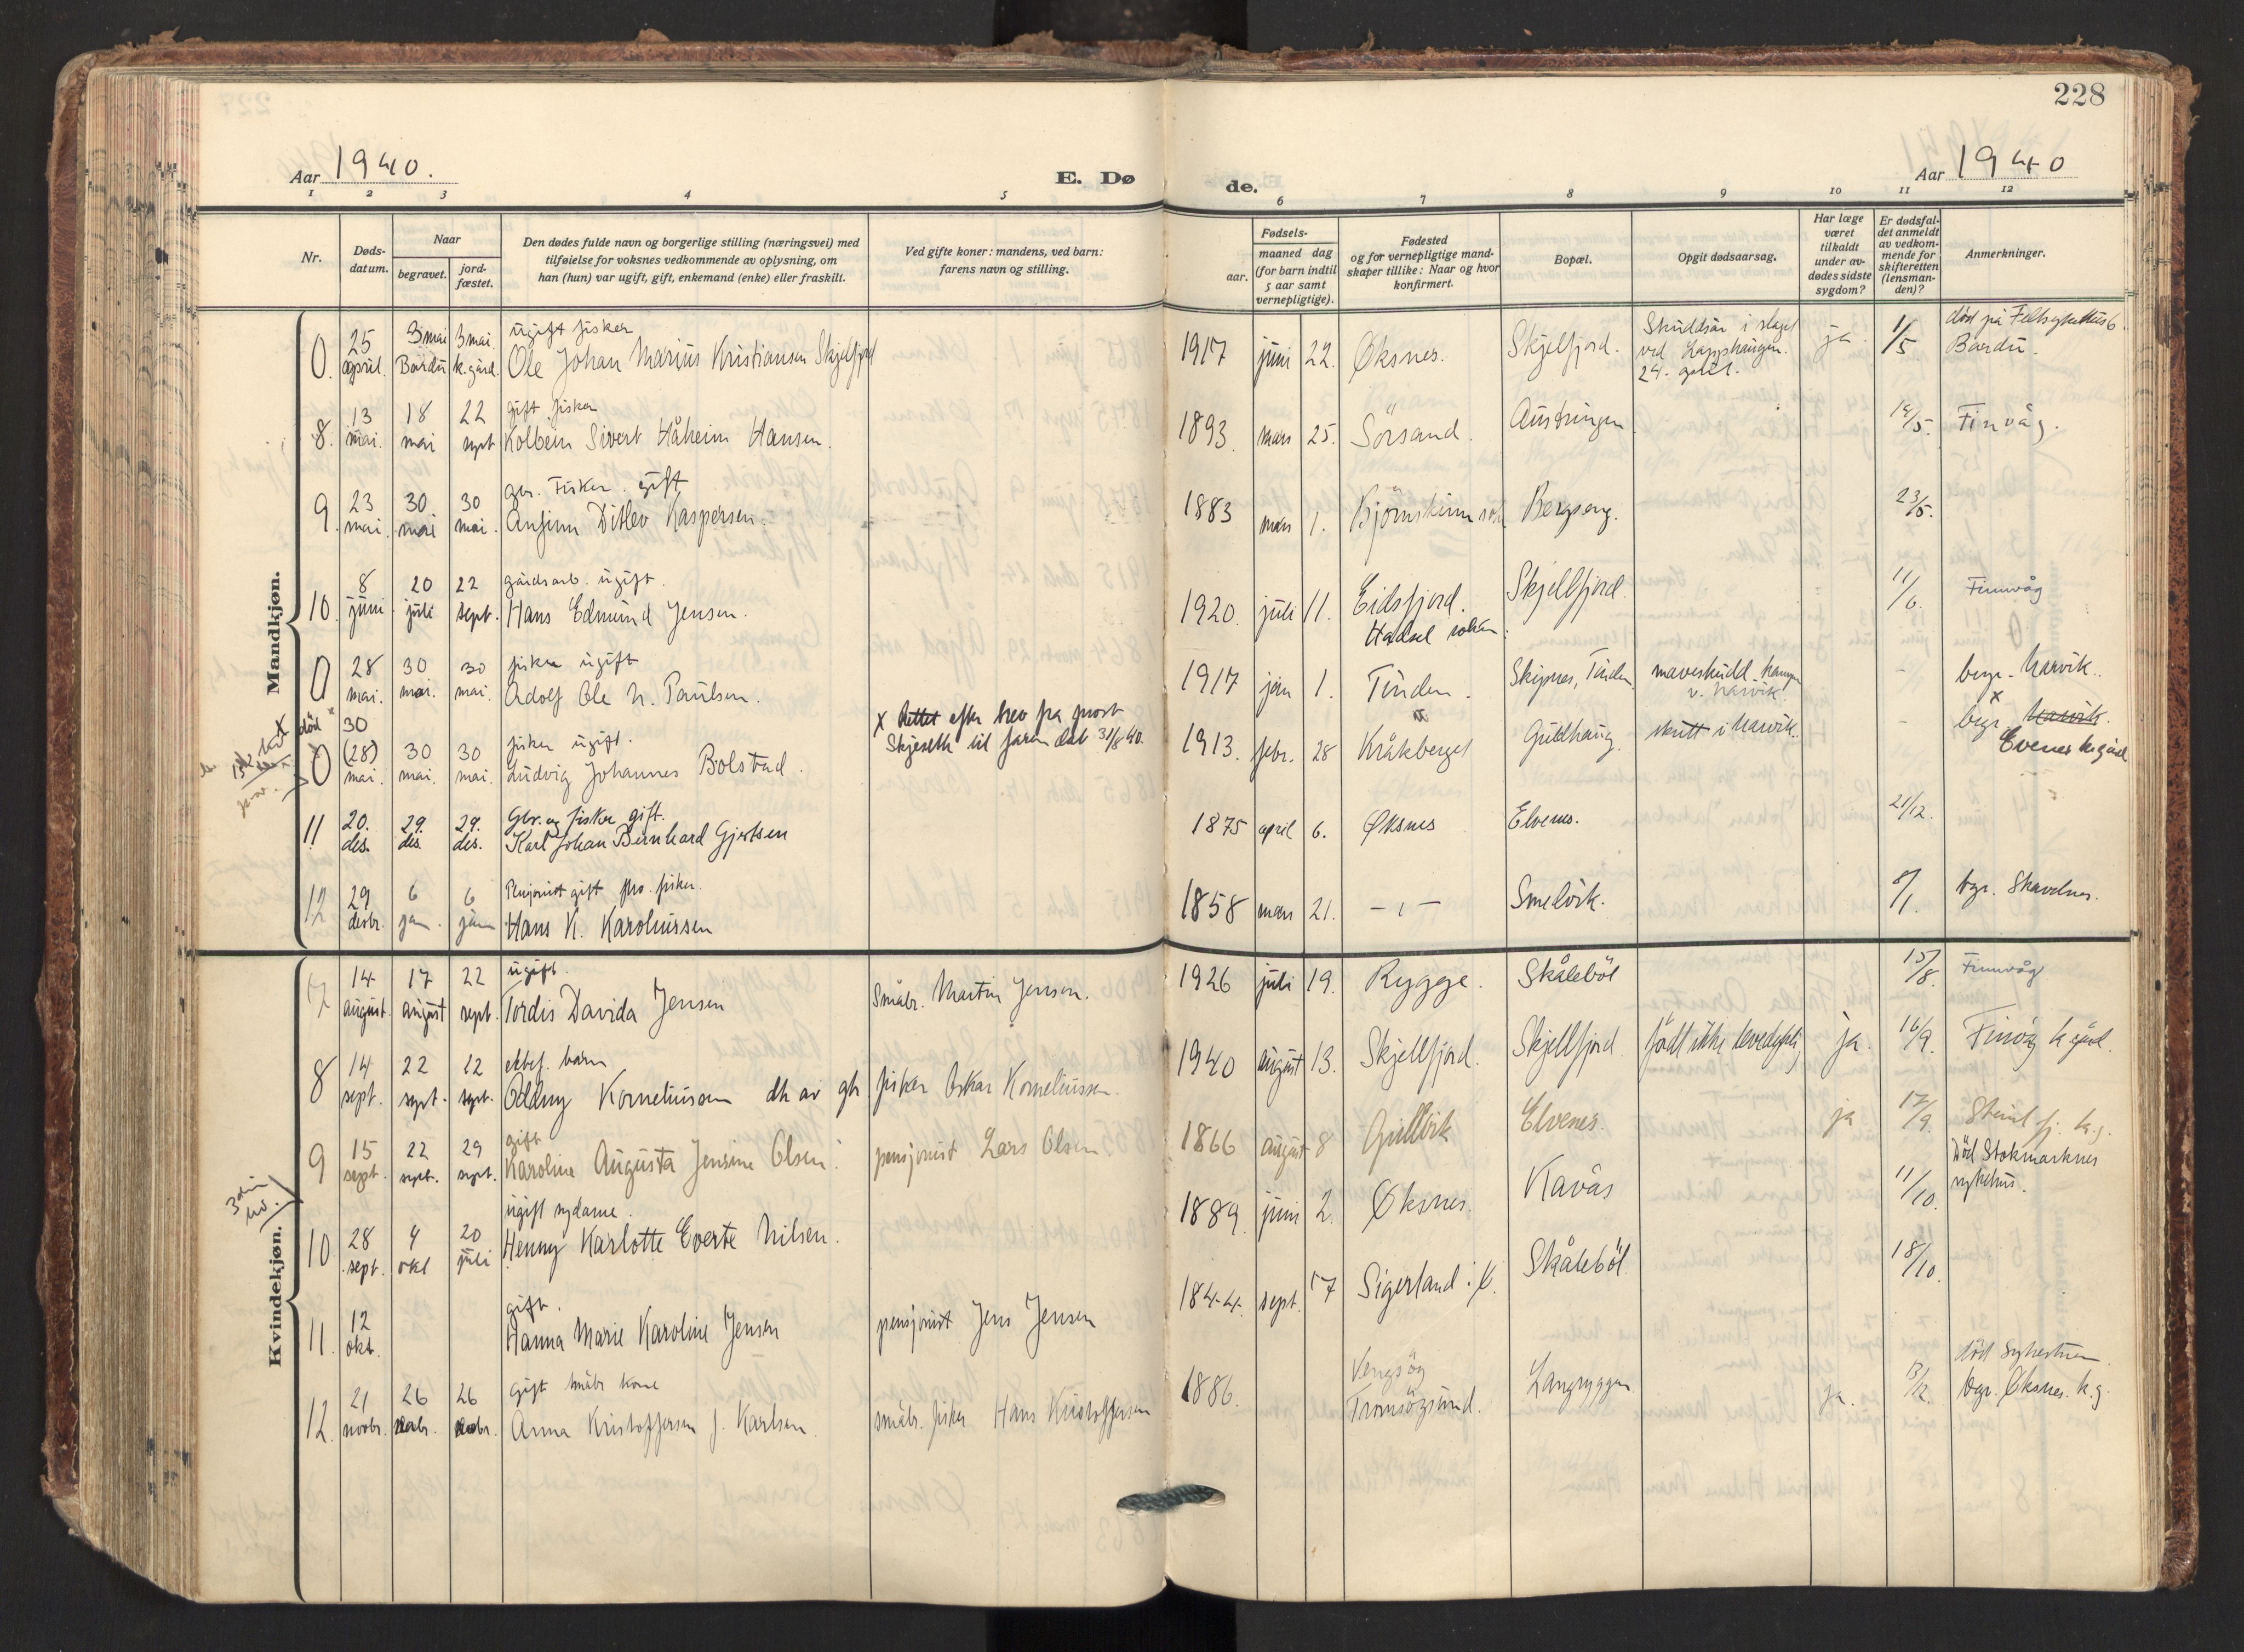 228
Aar 1940.
E. Dø
de.
Aar 1940
1 2 3 4 5 6 7 8 9 10 11 12
Nr.
Døds-
datum.
Naar
begravet.
jord-
fæstet.
Den dødes fulde navn og borgerlige stilling (næringsvei) med
tilføielse for voksnes vedkommende av oplysning, om
han (hun) var ugift, gift, enkemand (enke) eller fraskilt.
Ved gifte koner: mandens, ved barn:
farens navn og stilling.
Fødsels-
aar.
maaned dag
(for barn indtil
5 aar samt
vernepligtige).
Fødested
og for vernepligtige mand-
skaper tillike: Naar og hvor
konfirmert.
Bopæl.
Opgit dødsaarsag.
Har læge
været
tilkaldt
under av-
dødes sidste
sygdom?
Er dødsfal-
det anmeldt
av vedkom-
mende for
skifteretten
(lensman-
den)?
Anmerkninger.
Mandkjøn.
0. 25 april. 3 mai Bardu 3 mai k.gård. ugift fisker
Ole Johan Marius Kristiansen Skjelfjord
1917 juni 22. Øksnes. Skjelfjord. Skuddsår i slaget
ved Lapphaugen.
24. april. ja. 1/5 død på Feltsykehus 6
Bardu.
8. 13 mai. 18 mai 22 sept gift fisker
Kolbein Sivert Håheim Hansen.
1893. mars 25. Sørsand. Austringen 14/5. Finvåg.
9. 23 mai. 30 mai 30 mai. gbr. Fisker. gift
Anfinn Ditlev Kaspersen.
1883 mars 1. Bjørnskinn Bergseng. 23/5.
10. 8 juni 20 juli 22 sept. gårdsarb. ugift.
Hans Edmund Jensen.
1920. juli 11. Eidsfjord.
Hadsel Skjellfjord. 11/6. Finnvåg
0 28 mai. 30 mai. 30 mai. fisker ugift
Adolf Ole N. Paulsen.
1917 jan 1. Tinden. Skipnes, Tinden. maveskudd
v. Narvik. - begr. Narvik.
død x 30
0 (28) mai. 30 mai. 30 mai. fisker ugift.
Ludvig Johannes Bolstad.
x Rettet efter brev fra prost
Skjeseth til faren dat 31/8 40.
1913. febr. 28 Kråkberget Guldhaug. skutt i Narvik. - begr. Narvik.
Evenes k.gård
11 20. des. 29. des. 29. des. Gbr. og fisker gift.
Karl Johan Bernhard Gjertsen
1875 april 6. Øksnes Elvenes. 21/12.
12 29 desbr. 6 jan. 6 jan Pensjonist gift fhv. fisker.
Hans K. Karoliussen
1858 mars 21. - „ - Smelvik. 8/1. bgr. Skavelnes.
Kvindekjøn.
7 14 august 17 august 22 sept. ugift.
Tordis Davida Jensen
Småbr. Martin Jensen.
1926 juli 19. Rygge. Skålebøl 15/8. Finnvåg
8 14 sept. 22 sept. 22 sept. ektef. barn
Oddny Korneliussen dh av gb fisker Oskar Korneliussen.
1940 august 13. Skjellfjord. Skjellfjord født ikke levedyktig ja. 16/9. Finvåg k.gård.
9 15 sept. 22 sept. 29 sept. gift
Karoline Augusta Jensine Olsen.
pensjonist Lars Olsen.
1866 august 8 Gullvik Elvenes. ja 17/9. k.g.
10 28 sept. 4 okt 20 juli ugift sydame.
Henny Karlotte Everte Nilsen.
1889. juni 2. Øksnes. Kavås 11/10. Død Stokmarknes
sykehus.
11. 12 okt. gift.
Hanna Marie Karoline Jensen
pensjonist Jens Jensen
1844. sept. 17 Sigerland Skålebøl 18/10.
12. 21 novbr. 26 26 gift småbr kone
Anna Kristoffersen f. Karlsen.
småbr. fisker Hans Kristoffersen
1886. Vengsøy
Tromsøysund. Langryggen ja. 13/12. død Sykestuen.
bgr. Øksnes k.g.